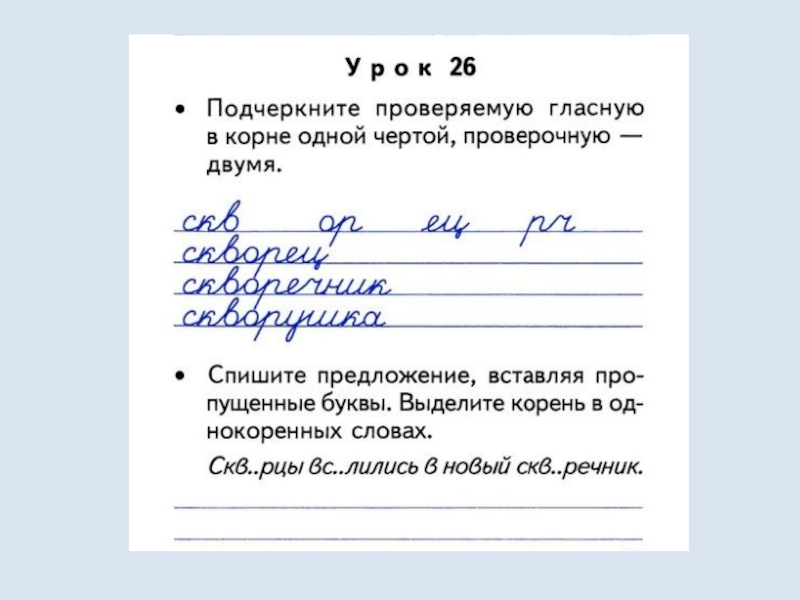 Урок 26
• Подчеркните проверяемую гласную
в корне одной чертой, проверочную —
двумя.
скв ор ец рч
скворец
скворечник
скворушка
• Спишите предложение, вставляя про-
пущенные буквы. Выделите корень в од-
нокоренных словах.
Скв..рцы вс..лились в новый скв..речник.